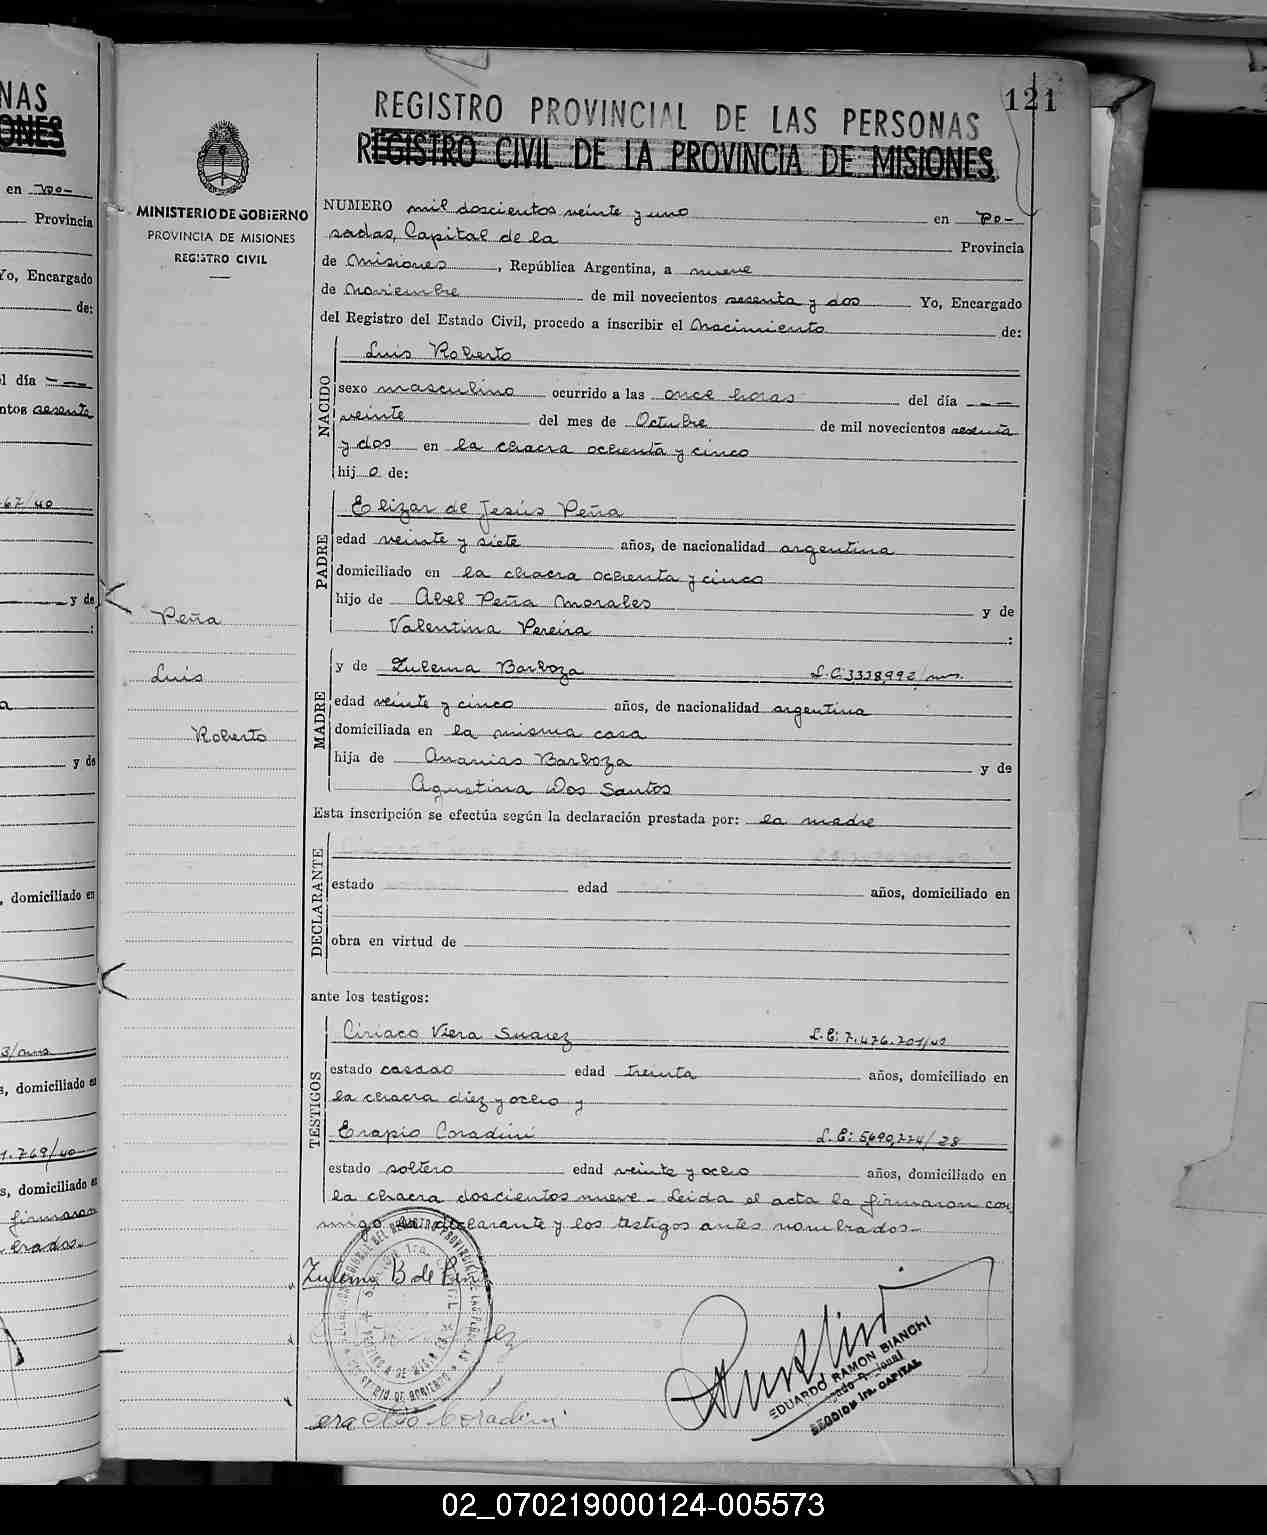 121
REGISTRO PROVINCIAL DE LAS PERSONAS
REGISTRO CIVIL DE LA PROVINCIA DE MISIONES
MINISTERIO DE GOBIERNO
PROVINCIA DE MISIONES
REGISTRO CIVIL
NUMERO mil doscientos veinte y uno en Po-
sadas, Capital de la Provincia
de Misiones, República Argentina, a nueve
de Noviembre de mil novecientos sesenta y dos Yo, Encargado
del Registro del Estado Civil, procedo a inscribir el Nacimiento de:
NACIDO
Luis Roberto
sexo masculino ocurrido a las once horas del día ---
veinte del mes de Octubre de mil novecientos sesenta
y dos en la chacra ochenta y cinco
hijo de:
PADRE
Elizar de Jesús Peña
edad veinte y siete años, de nacionalidad argentina
domiciliado en la chacra ochenta y cinco
hijo de Abel Peña Morales y de
Valentina Pereira :
Peña
Luis
Roberto
MADRE
y de Zulema Barboza L.C. 3338992/
edad veinte y cinco años, de nacionalidad argentina
domiciliada en la misma casa
hija de Ananias Barboza y de
Agustina Dos Santos
Esta inscripción se efectúa según la declaración prestada por: la madre
DECLARANTE
estado edad años, domiciliado en
obra en virtud de
ante los testigos:
TESTIGOS
Ciriaco Viera Suarez L.E: 7.476.201/40
estado casado edad treinta años, domiciliado en
la chacra diez y ocho y
Erapio Coradini L.E: 5,690,224/28
estado soltero edad veinte y ocho años, domiciliado en
la chacra doscientos nueve - Leida el acta la firmaron con
migo la declarante y los testigos antes nombrados-
Zulema B de Peña
EDUARDO RAMON BIANCHI
SECCION 1ra. CAPITAL
Coradini
NAS
ONES
en Po-
Provincia
Yo, Encargado
de:
el día ---
ntos sesenta
67/40
y de
:
y de
, domiciliado en
s, domiciliado en
.769/40
s, domiciliado en
firmaron
brados.-
02_070219000124-005573